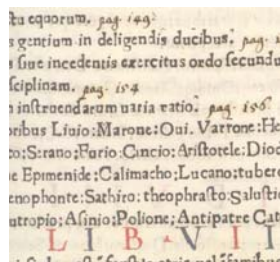 tu equorum. pag. 149.
s gentium in deligendis ducibus. pag.
s siue incedentis exercitus ordo secundu
sciplinam. pag. 154
n instruendarum uaria ratio. pag. 156.
oribus Liuio: Marone: Oui. Varrone: He
co: Strano: Furio: Cincio: Aristotele: Diod
e Epimenide: Calimacho: Lucano: tuber
enophonte: Sathiro: theophrasto: Salustio
utropio: Asinio: Polione: Antipatre Cat
L I B . V I I